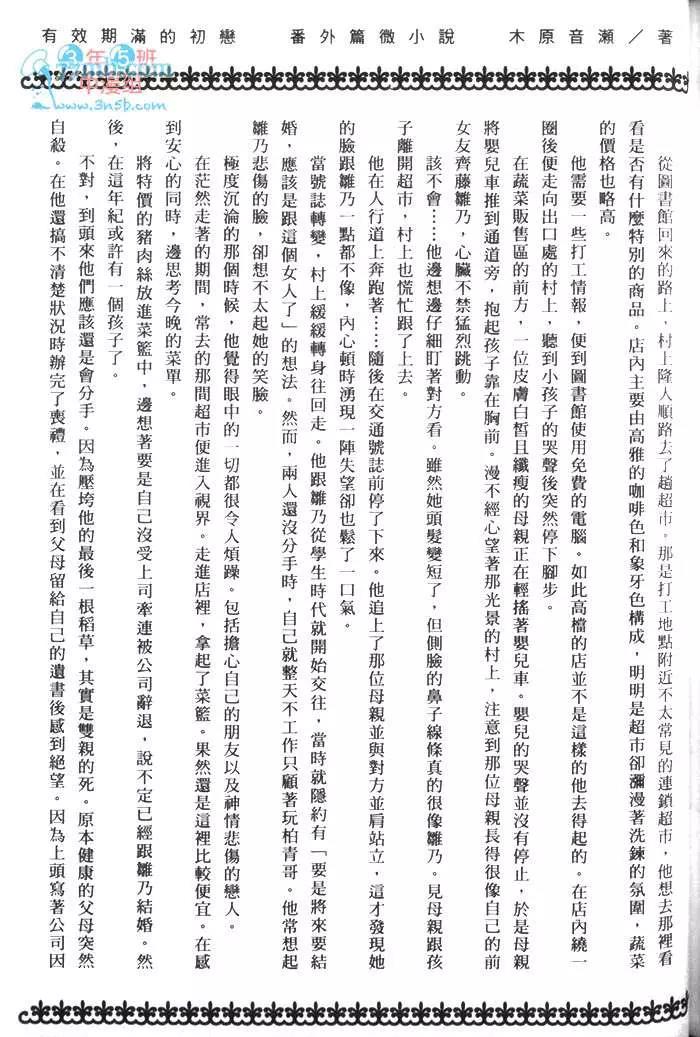 有效期滿的初戀　番外篇微小說　木原音瀨／著
3年5班
中漫組
www.3n5b.com
從圖書館回來的路上，村上隆人順路去了趟超市。那是打工地點附近不太常見的連鎖超市，他想去那裡看
看是否有什麼特別的商品。店內主要由高雅的咖啡色和象牙色構成，明明是超市卻瀰漫著洗鍊的氛圍，蔬菜
的價格也略高。
他需要一些打工情報，便到圖書館使用免費的電腦。如此高檔的店並不是這樣的他去得起的。在店內繞一
圈後便走向出口處的村上，聽到小孩子的哭聲後突然停下腳步。
在蔬菜販售區的前方，一位皮膚白皙且纖瘦的母親正在輕搖著嬰兒車。嬰兒的哭聲並沒有停止，於是母親
將嬰兒車推到通道旁，抱起孩子靠在胸前。漫不經心望著那光景的村上，注意到那位母親長得很像自己的前
女友齊藤雛乃，心臟不禁猛烈跳動。
該不會……他邊想邊仔細盯著對方看。雖然她頭髮變短了，但側臉的鼻子線條真的很像雛乃。見母親跟孩
子離開超市，村上也慌忙跟了上去。
他在人行道上奔跑著……隨後在交通號誌前停了下來。他追上了那位母親並與對方並肩站立，這才發現她
的臉跟雛乃一點都不像，內心頓時湧現一陣失望卻也鬆了一口氣。
當號誌轉變，村上緩緩轉身往回走。他跟雛乃從學生時代就開始交往，當時就隱約有「要是將來要結
婚，應該是跟這個女人了」的想法。然而，兩人還沒分手時，自己就整天不工作只顧著玩柏青哥。他常想起
雛乃悲傷的臉，卻想不太起她的笑臉。
極度沉淪的那個時候，他覺得眼中的一切都很令人煩躁。包括擔心自己的朋友以及神情悲傷的戀人。
在茫然走著的期間，常去的那間超市便進入視界。走進店裡，拿起了菜籃。果然還是這裡比較便宜。在感
到安心的同時，邊思考今晚的菜單。
將特價的豬肉絲放進菜籃中，邊想著要是自己沒受上司牽連被公司辭退，說不定已經跟雛乃結婚。然
後，在這年紀或許有一個孩子了。
不對，到頭來他們應該還是會分手。因為壓垮他的最後一根稻草，其實是雙親的死。原本健康的父母突然
自殺。在他還搞不清楚狀況時辦完了喪禮，並在看到父母留給自己的遺書後感到絕望。因為上頭寫著公司因